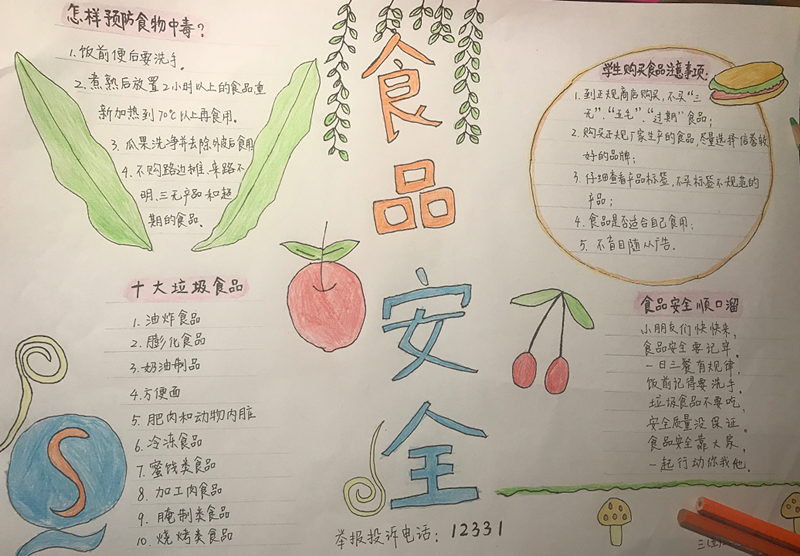 怎样预防食物中毒？
1.饭前便后要洗手。
2.煮熟后放置2小时以上的食品重
新加热到70℃以上再食用。
3.瓜果洗净并去除外皮后食用
4.不购路边摊、来路不
明、三无产品和超
期的食品。
十大垃圾食品
1.油炸食品
2.膨化食品
3.奶油制品
4.方便面
5.肥肉和动物内脏
6.冷冻食品
7.蜜饯类食品
8.加工肉食品
9.腌制类食品
10.烧烤类食品
食品安全
举报投诉电话：12331
学生购买食品注意事项：
1.到正规商店购买，不买“三
无”、“五毛”、“过期”食品；
2.购买正规厂家生产的食品，尽量选择信誉较
好的品牌；
3.仔细查看产品标签，不买标签不规范的
产品；
4.食品是否适合自己食用；
5.不盲目随从广告。
食品安全顺口溜
小朋友们快快来，
食品安全要记牢。
一日三餐有规律，
饭前记得要洗手。
垃圾食品不要吃，
安全质量没保证。
食品安全靠大家，
一起行动你我他。